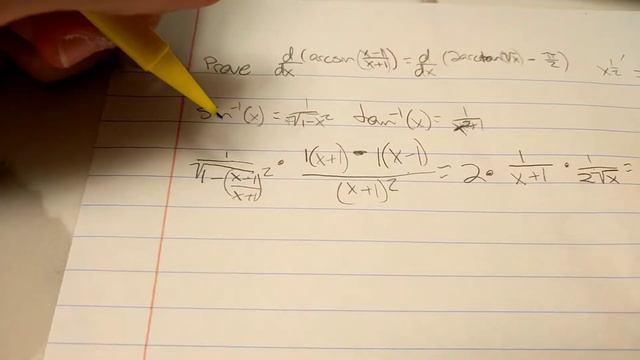 Prove d/dx (arcsin(x-1/x+1)) = d/dx (2arctan(√x) - π/2) x^1/2 ' =
sin^-1(x) = 1/√1-x^2 tan^-1(x) = 1/x^2+1
1/√1-(x-1/x+1)^2 · 1(x+1) - 1(x-1)/(x+1)^2 = 2 · 1/x+1 · 1/2√x =